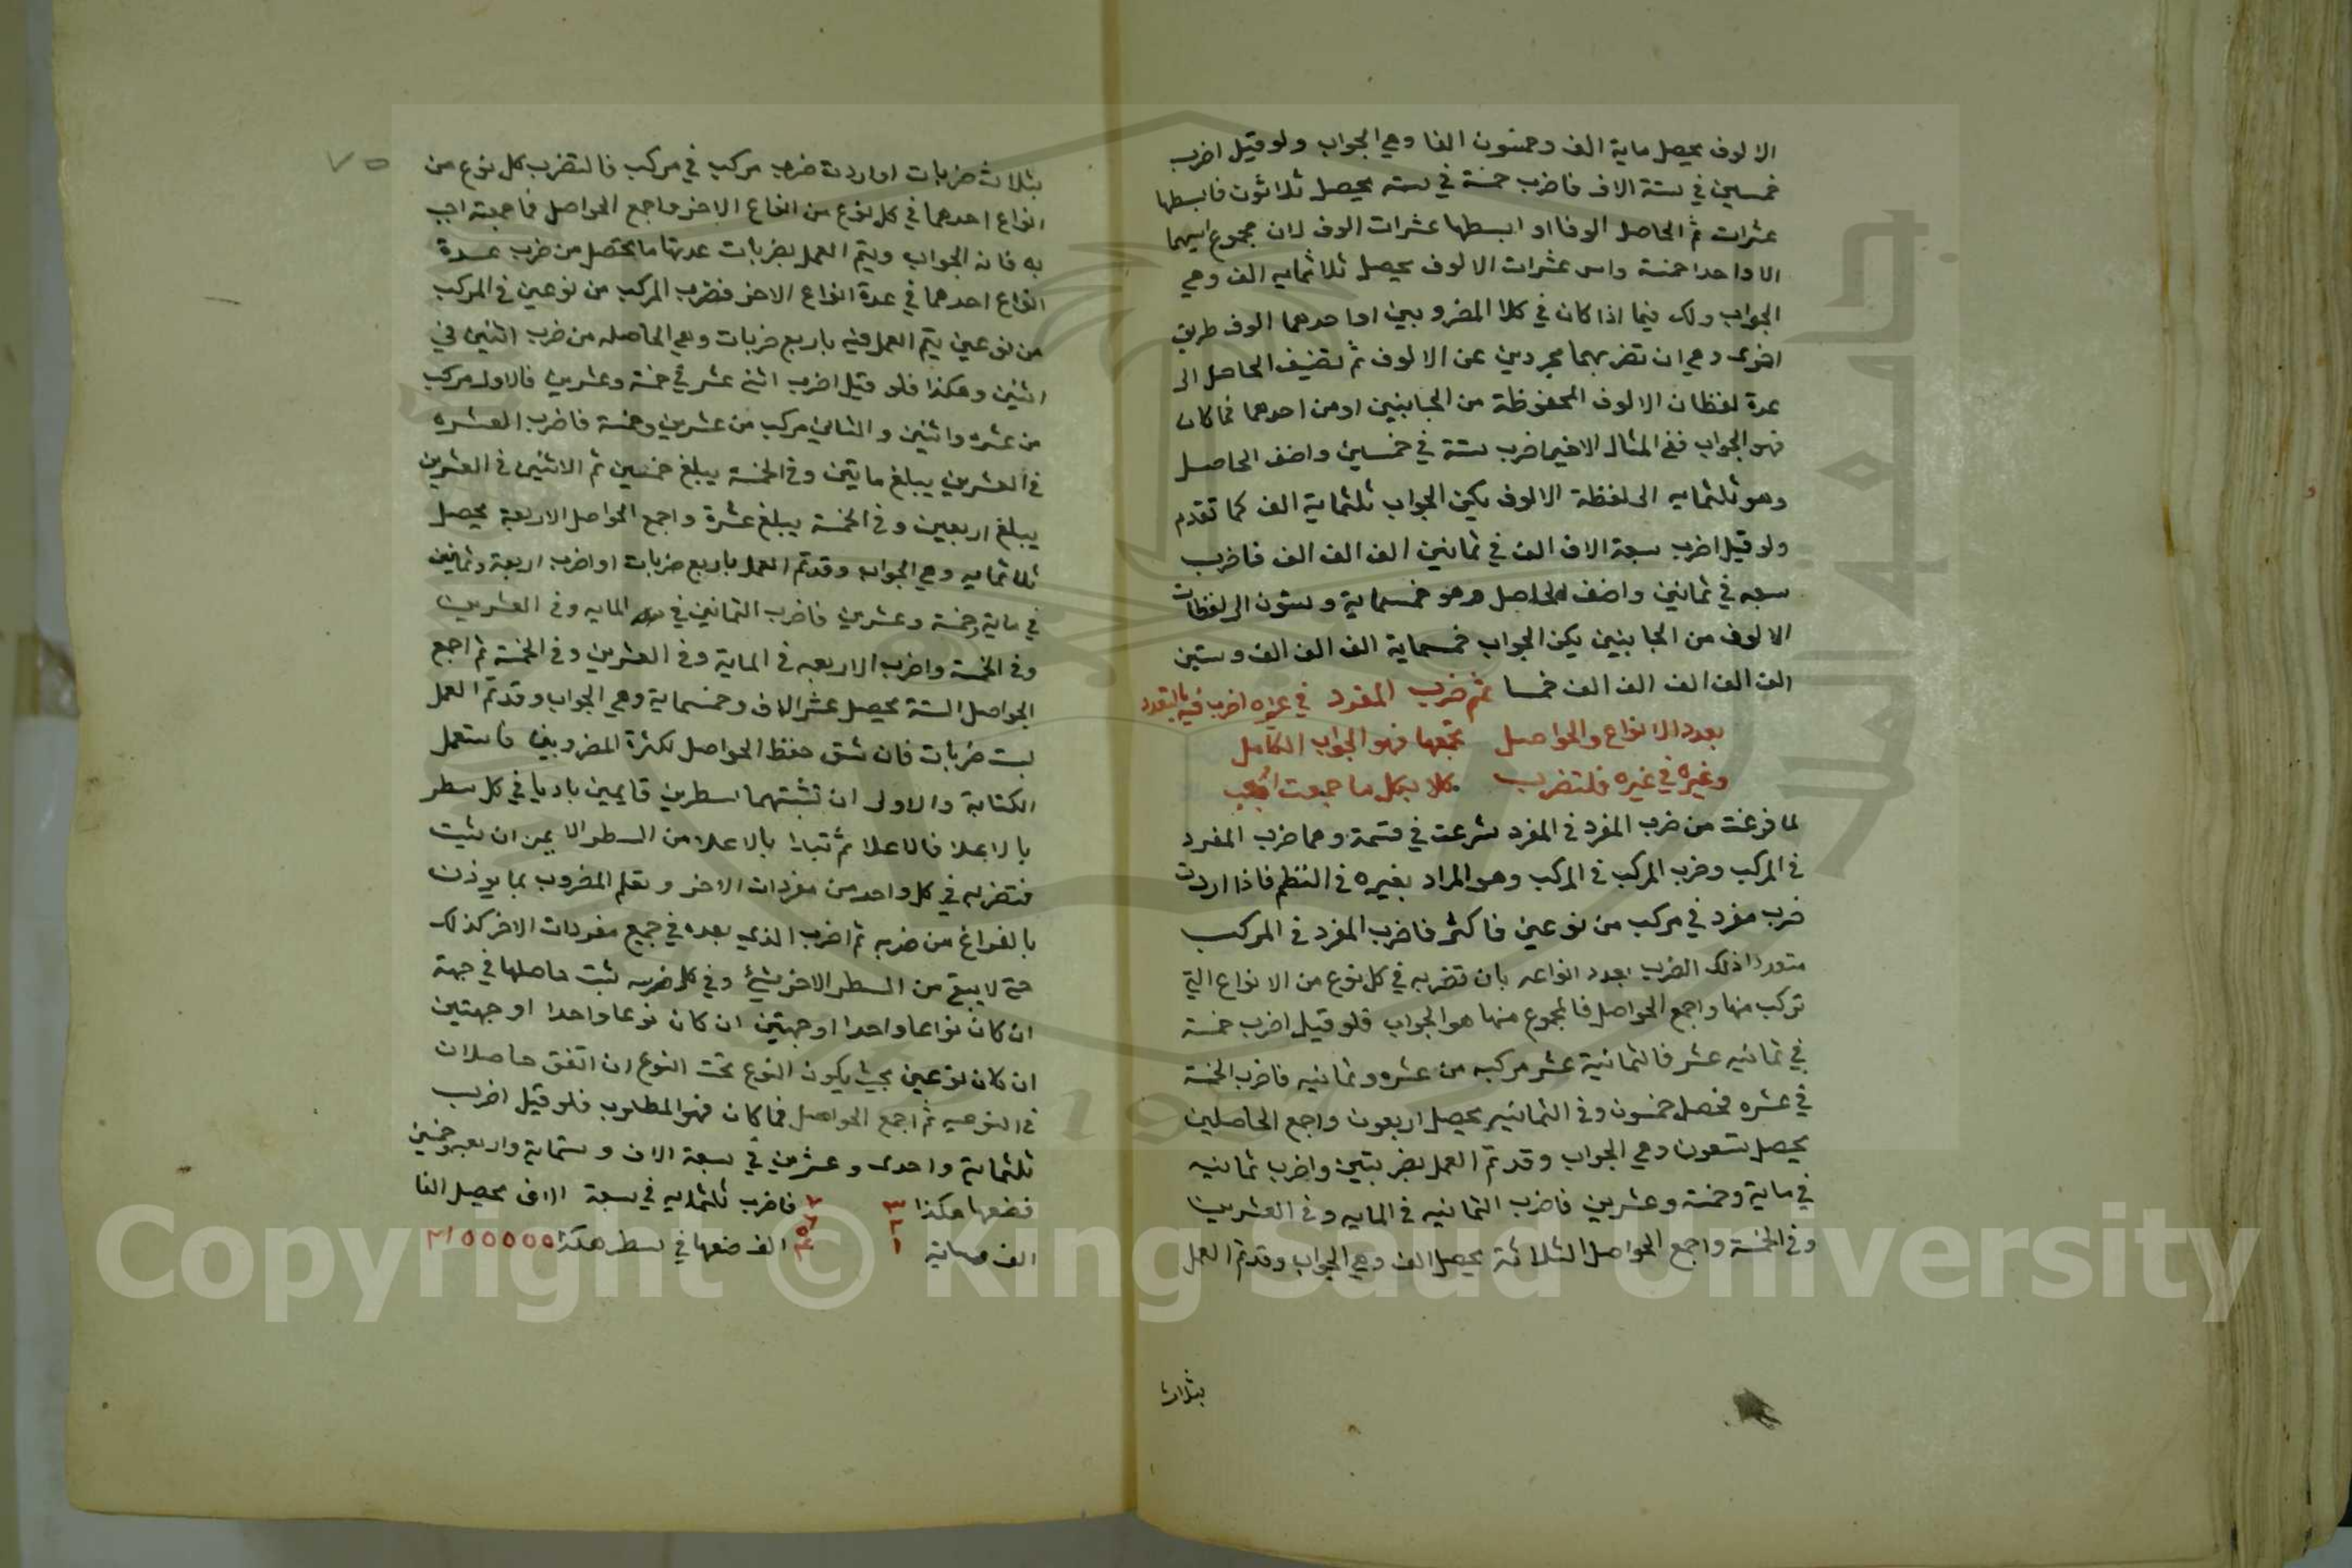 الالوف يحصل ماية الف وخمسون الفا وهي الجواب ولو قيل اضرب
خمسين في ستة الاف فاضرب خمسة في سته يحصل ثلاثون فابسطها
عشرات ثم الحاصل الوفا او ابسطها عشرات الوف لان مجموع اسيهما
الا واحدا خمسة واس عشرات الالوف يحصل ثلاثمايه الف وهي
الجواب ولك فيما اذا كان في كلا المضروبين او احدهما الوف طريق
اخرى وهي ان تضربهما مجردين عن الالوف ثم تضيف الحاصل الى
عدة لفظات الالوف المحفوظة من الجانبين او من احدهما فما كان
فهو الجواب ففي المثال الاخير اضرب ستة في خمسين واضف الحاصل
وهو ثلثمايه الى لفظة الالوف يكن الجواب ثلثماية الف كما تقدم
ولو قيل اضرب سبعة الاف الف في ثمانين الف الف الف فاضرب
سبعه في ثمانين واضف الحاصل وهو خمسماية وستون الى لفظات
الالوف من الجانبين يكن الجواب خمسماية الف الف الف وستين
الف الف الف الف الف خمسا ثم ضرب المفرد في غيره اضرب فيه بالتعدد
بعدد الانواع والحواصل تجمعها فهو الجواب الكامل
وغيره في غيره فلتضرب كلا بكل ما جمعت اجب
لما فرغت من ضرب المفرد في المفرد شرعت في قسمة وهما ضرب المفرد
في المركب وضرب المركب في المركب وهو المراد بغيره في النظم فاذا اردت
ضرب مفرد في مركب من نوعين فاكثر فاضرب المفرد في المركب
متعددا ذلك الضرب بعدد انواعه بان تضربه في كل نوع من الانواع التي
تركب منها واجمع الحواصل فالمجموع منها هو الجواب فلو قيل اضرب خمسة
في ثمانيه عشر فالثمانية عشر مركبه من عشره وثمانيه فاضرب الخمسة
في عشره فحصل خمسون وفي الثمانيه يحصل اربعون واجمع الحاصلين
يحصل تسعون وهي الجواب وقد تم العمل بضربتين واضرب ثمانيه
في ماية وخمسة وعشرين فاضرب الثمانيه في المايه وفي العشرين
وفي الخمسة واجمع الحواصل الثلاثة يحصل الف وهي الجواب وقد تم العمل
بثلاث
٧٥
بثلاث ضربات او اردت ضرب مركب في مركب فالتضرب كل نوع من
انواع احدهما في كل نوع من انواع الاخر واجمع الحواصل فما جمعته اجب
به فانه الجواب ويتم العمل بضربات عدتها ما يحصل من ضرب عدة
انواع احدهما في عدة انواع الاخر فضرب المركب من نوعين في المركب
من نوعين يتم العمل فيه باربع ضربات وهي الحاصله من ضرب اثنين في
اثنين وهكذا فلو قيل اضرب اثني عشر في خمسة وعشرين فالاول مركب
من عشره واثنين والثاني مركب من عشرين وخمسة فاضرب العشره
في العشرين يبلغ مايتين وفي الخمسة يبلغ خمسين ثم الاثنين في العشرين
يبلغ اربعين وفي الخمسة يبلغ عشرة واجمع الحواصل الاربعة يحصل
ثلاثمايه وهي الجواب وقد تم العمل باربع ضربات او اضرب اربعة وثمانين
في ماية وخمسة وعشرين فاضرب الثمانين في المايه وفي العشرين
وفي الخمسة واضرب الاربعه في الماية وفي العشرين وفي الخمسة ثم اجمع
الحواصل الستة يحصل عشر الاف وخمسماية وهي الجواب وقد تم العمل
بست ضربات فان شق حفظ الحواصل لكثرة المضروبين فاستعمل
الكتابة والاولى ان تثبتهما سطرين قايمين باديا في كل سطر
بالاعلا فالاعلا ثم تبدا بالاعلا من السطر الايمن ان شيت
فتضربه في كل واحد من مفردات الاخر وتعلم المضروب بما يوذن
بالفراغ من ضربه ثم اضرب الذي بعده في جميع مفردات الاخر كذلك
حتى لا يبقى من السطر الاخر شئ وفي كل ضربه ثبت حاصلها في جهة
ان كان نوعا واحدا او جهتين ان كان نوعا واحدا او جهتين
ان كان نوعين بحيث يكون النوع تحت النوع ان اتفق حاصلان
في النوعيه ثم اجمع الحواصل فما كان فهو المطلوب فلو قيل اضرب
ثلثماية واحدى وعشرين في سبعة الاف وستماية واربعه وخمسين
فضعها هكذا ٣ ٢ ١ ٧ ٦ ٥ ٤ فاضرب ثلثمايه في سبعة الاف يحصل الفا
الف وماية الف ضعها في سطر هكذا ٢١٥٥٥٥٥
Copyright © King Saud University